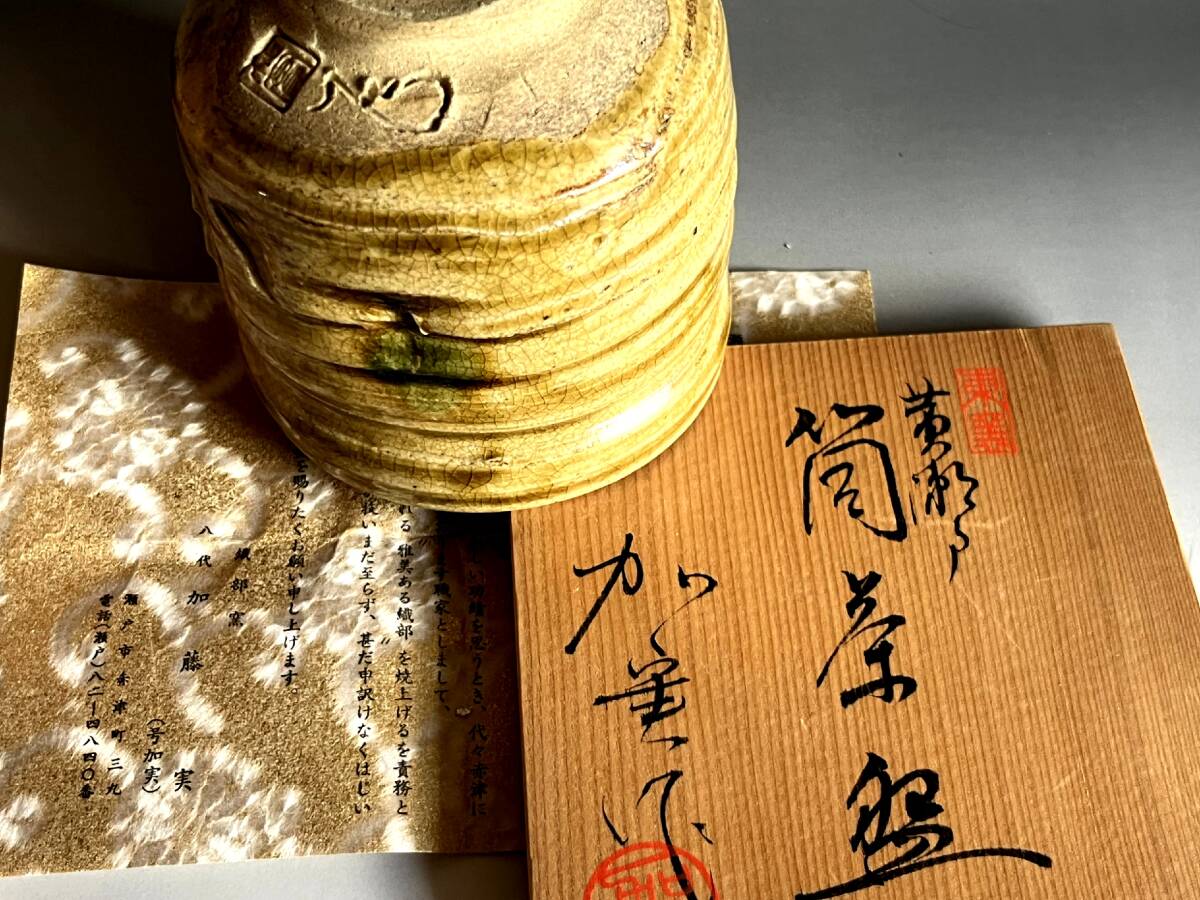 黄瀬戸
筒茶盌
加実作
い功績を思うとき、代々赤津に
職家としまして、
れる雅美ある織部〃を焼上げるを責務と
技いまだ至らず、甚だ申訳けなくはじい
を賜りたくお願い申し上げます。
織部窯
八代 加藤 実
(号加実)
瀬戸市赤津町三九
電話(瀬戸)八二ー四八四〇番